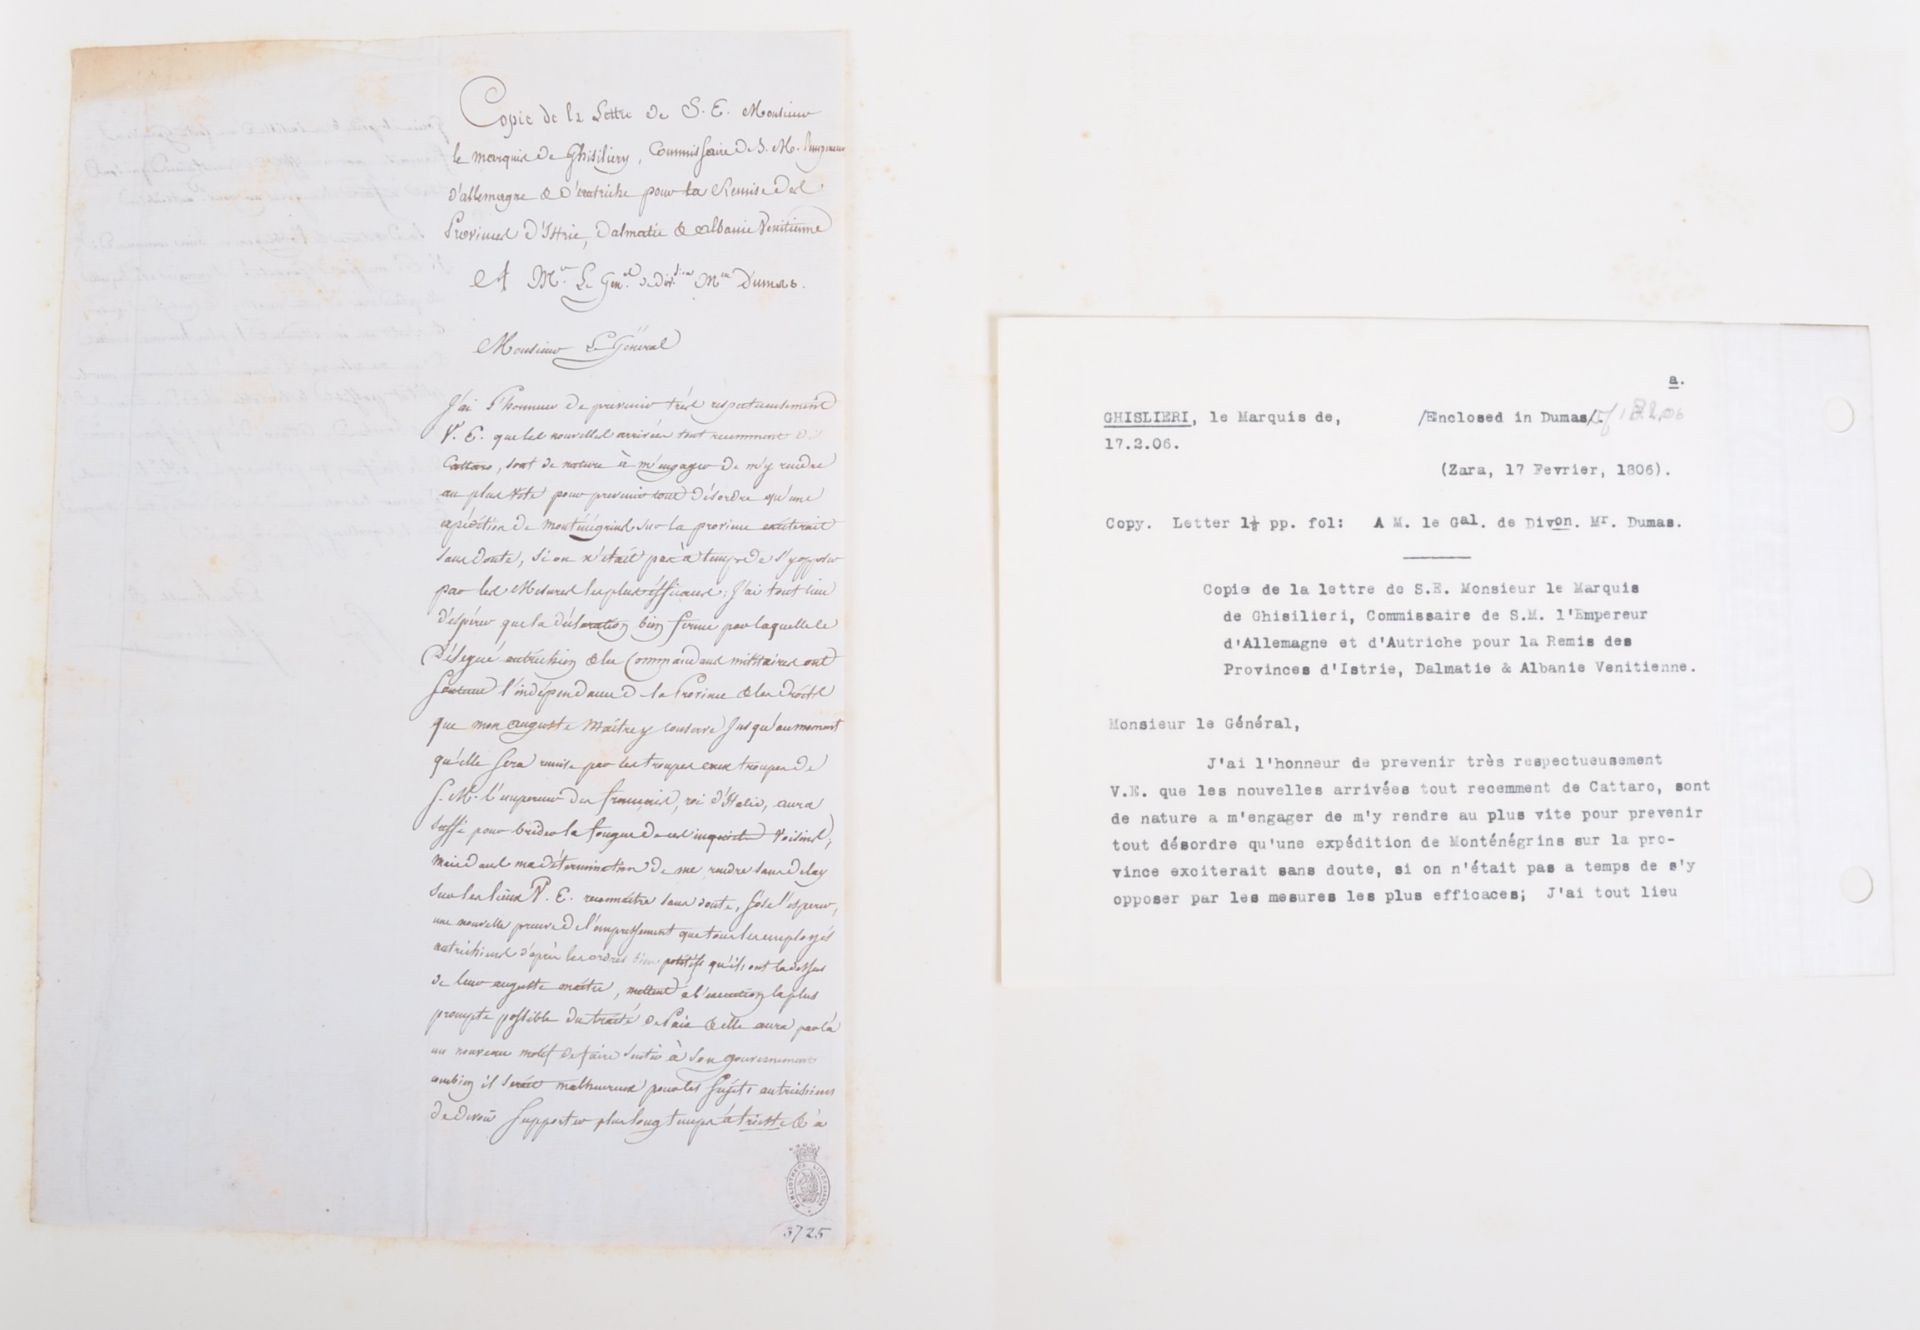 Copie de la Lettre de S. E. Monsieur
le marquis de Ghisiliery, Commissaire de S. M. l'empereur
d'allemagne & d'autriche pour la Remise des
Provinces d'Istrie, Dalmatie & Albanie Venitienne
A Mr. Le Gen.al de div.sion Mu Dumas.
Monsieur Le Général
J'ai l'honneur de prevenir très respectueusement
V. E. que les nouvelles arrivées tout recemment de
Cattaro, sont de nature à m'engager de m'y rendre
au plus vite pour prevenir tout désordre qu'une
expédition de monténégrins sur la province exciterait
sans doute, si on n'était pas à temps de s'y opposer
par les Mesures les plus éfficaces; J'ai tout lieu
d'éspérer que la déclaration bien ferme par laquelle le
Délegué autrichien & les Commandans militaires ont
soutenu l'indépendance de la Province & les droits
que mon auguste Maître y conserve Jusqu'au moment
qu'elle sera remise par les troupes aux troupes de
S. M. l'empereur des français, roi d'Italie, aura
suffi pour brider la fougue de ces inquiets Voisins,
mais dans ma détermination de me rendre sans delay
sur les lieux V. E. reconnaitra sans doute, j'ose l'esperer,
une nouvelle preuve de l'empressement que tous les employés
autrichiens d'après les ordres bien positifs qu'ils ont la dessus
de leur auguste maitre, mettent à l'execution la plus
prompte possible du traité de Paix & elle aura par là
un nouveau motif de faire sentir à son gouvernement
combien il serait malheureux pour les sujets autrichiens
de devoir supporter plus long temps à trieste & à
3725
a.
GHISLIERI, le Marquis de, /Enclosed in Dumas/
17.2.06.
(Zara, 17 Fevrier, 1806).
Copy. Letter 1½ pp. fol: A M. le Gal. de Divon. Mr. Dumas.
Copie de la lettre de S.E. Monsieur le Marquis
de Ghisilieri, Commissaire de S.M. l'Empereur
d'Allemagne et d'Autriche pour la Remis des
Provinces d'Istrie, Dalmatie & Albanie Venitienne.
Monsieur le Général,
J'ai l'honneur de prevenir très respectueusement
V.E. que les nouvelles arrivées tout recemment de Cattaro, sont
de nature a m'engager de m'y rendre au plus vite pour prevenir
tout désordre qu'une expédition de Monténégrins sur la pro-
vince exciterait sans doute, si on n'était pas a temps de s'y
opposer par les mesures les plus efficaces; J'ai tout lieu